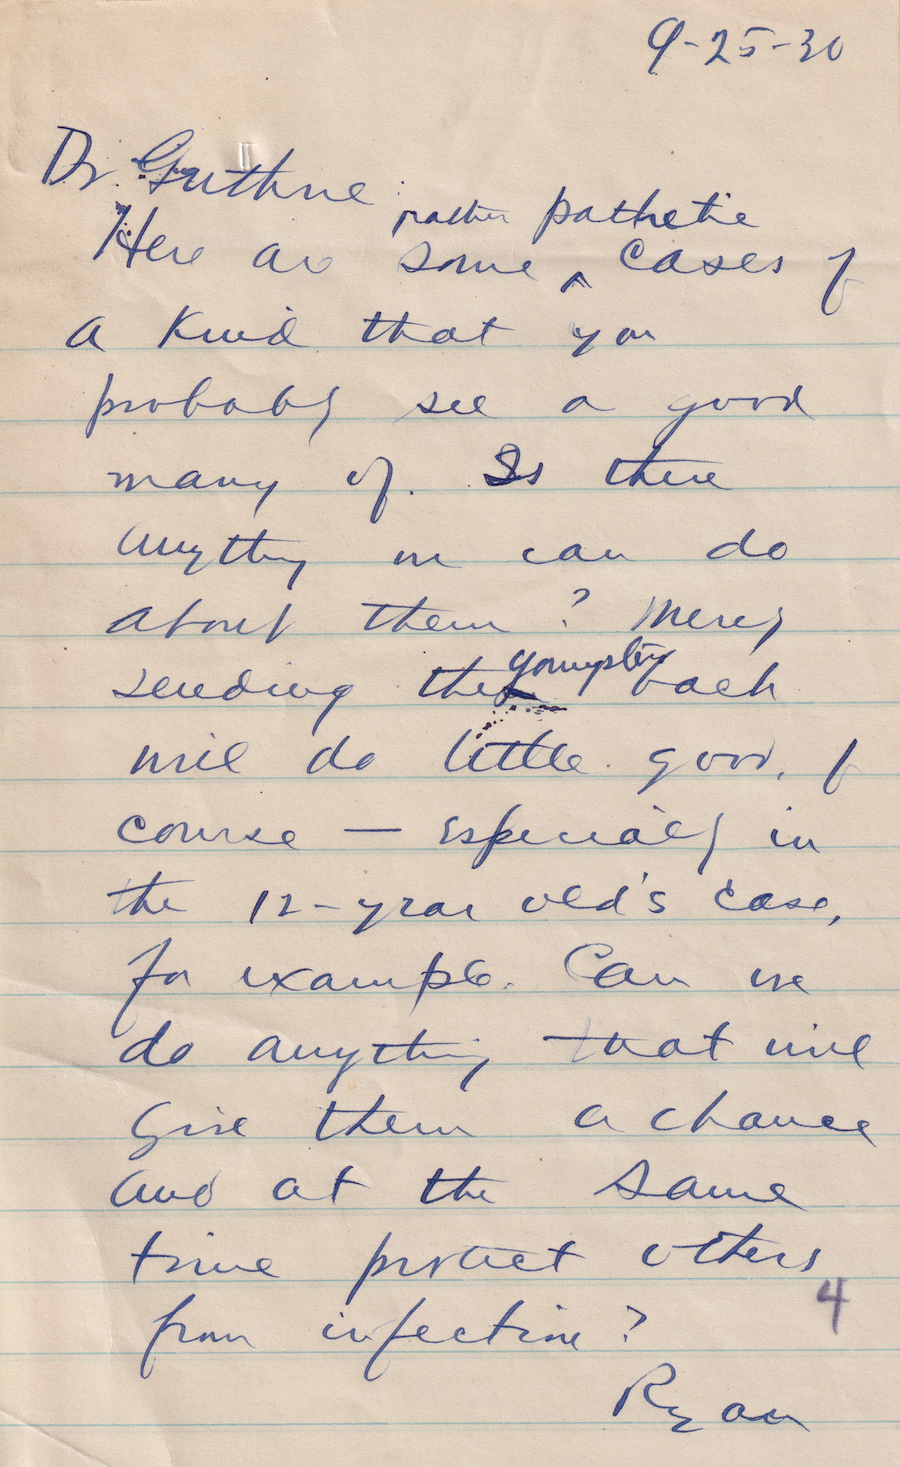 9-25-30
Dr. Guthrie:
rather pathetic
Here are some ^ cases of
a kind that you
probably see a good
many of. Is there
anything we can do
about them? Merely
sending the youngsters back
will do little good, of
course — especially in
the 12-year old's case,
for example. Can we
do anything that will
give them a chance
and at the same
time protect others
from infection?
4
Ryan